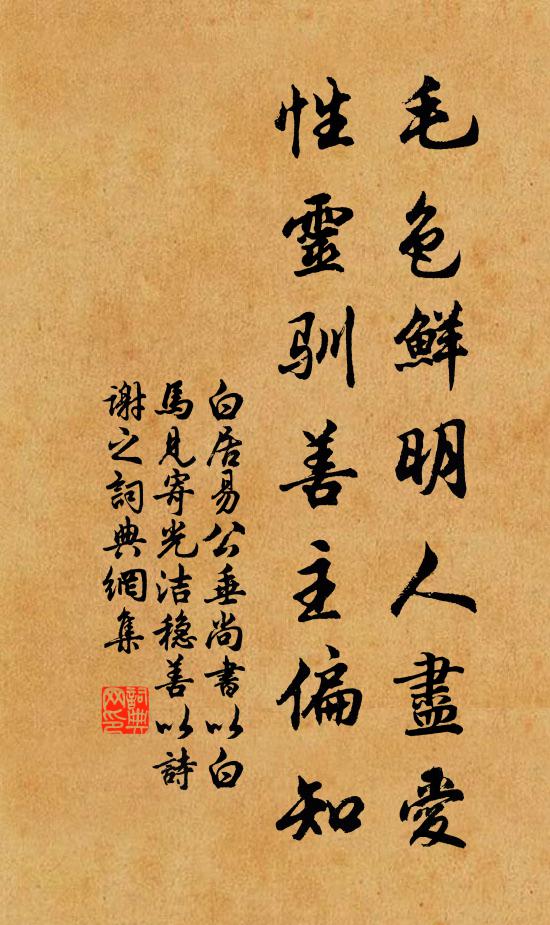 毛色鮮明人盡愛
性靈馴善主偏知
白居易公垂尚書以白
馬見寄光洁穏善以詩
謝之詞典網集
詞典
网印